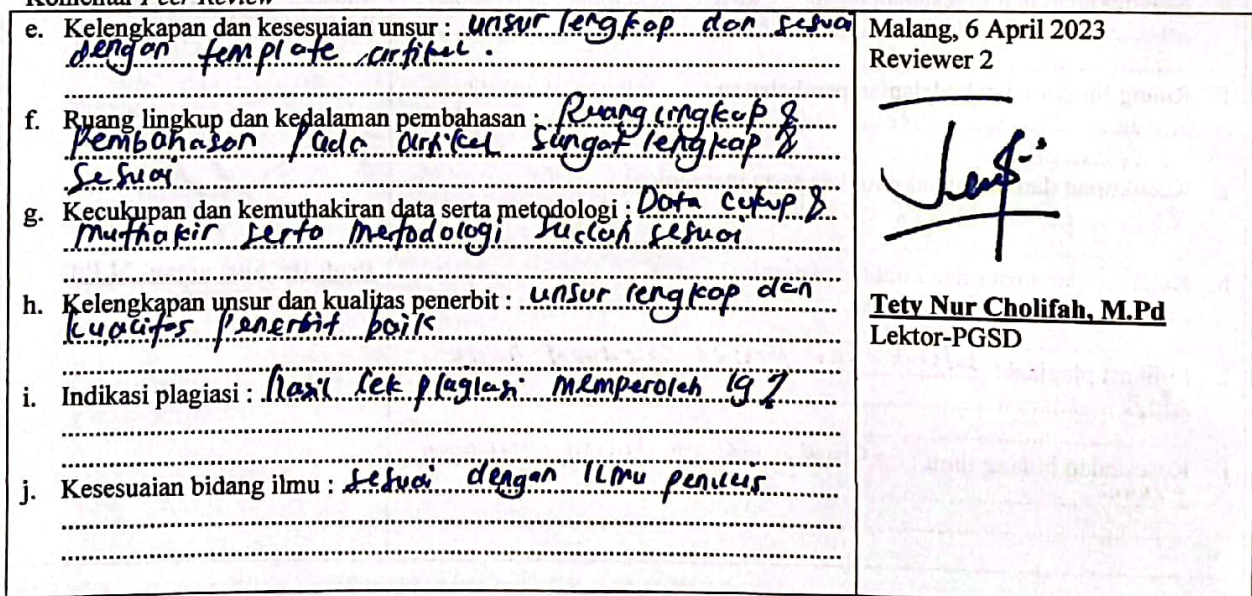 Komentar Peer Review
e. Kelengkapan dan kesesuaian unsur : unsur lengkap dan sesuai
dengan template artikel.
f. Ruang lingkup dan kedalaman pembahasan : Ruang lingkup &
Pembahasan pada artikel sangat lengkap &
Sesuai
g. Kecukupan dan kemuthakiran data serta metodologi : Data cukup &
muthakir serta metodologi sudah sesuai
h. Kelengkapan unsur dan kualitas penerbit : unsur lengkap dan
kualitas penerbit baik
i. Indikasi plagiasi : hasil cek plagiasi memperoleh 19%
j. Kesesuaian bidang ilmu : sesuai dengan ilmu penulis
Malang, 6 April 2023
Reviewer 2
Tety Nur Cholifah, M.Pd
Lektor-PGSD